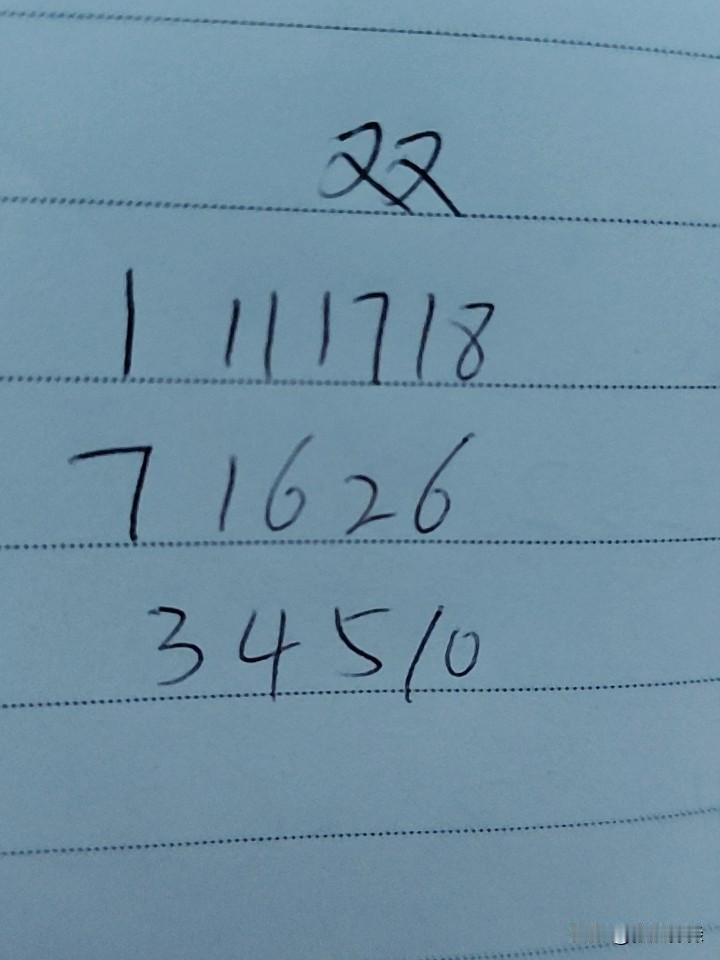 双
1 11 17 18
7 16 26
3 4 5 10